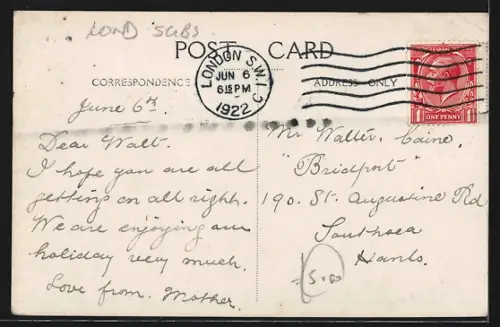 LOND SUBS
POST CARD
CORRESPONDENCE
ADDRESS ONLY
LONDON S.W.1.
JUN 6
1922
ONE PENNY
June 6th
Dear Walt.
I hope you are all
getting on all right.
We are enjoying our
holiday very much.
Love from. Mother.
Mr Walter. Caine.
"Bridport"
190. St. Augustine Rd
Southsea
Hants.
5.00